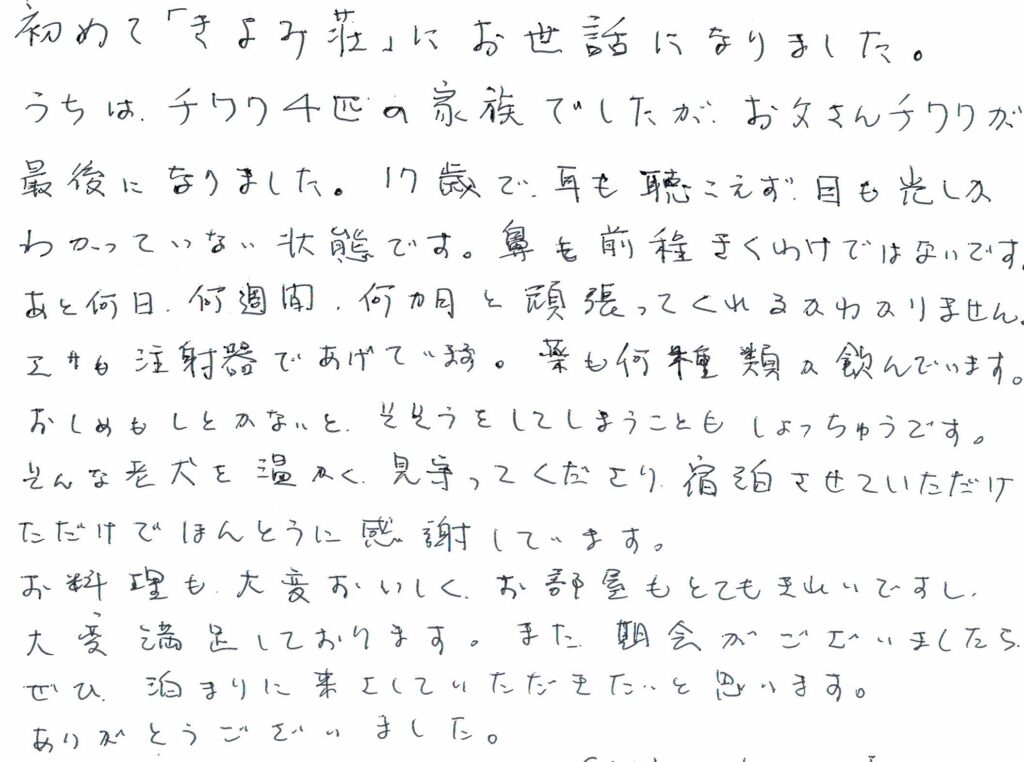 初めて「きよみ荘」にお世話になりました。
うちは、チワワ4匹の家族でしたが、お父さんチワワが
最後になりました。17歳で、耳も聴こえず、目も光しか
わかっていない状態です。鼻も前程きくわけではないです。
あと何日、何週間、何カ月と頑張ってくれるかわかりません。
エサも注射器であげています。薬も何種類か飲んでいます。
おしめもしとかないと、そそうをしてしまうこともしょっちゅうです。
そんな老犬を温かく、見守ってくださり、宿泊させていただけ
ただけでほんとうに感謝しています。
お料理も、大変おいしく、お部屋もとてもきれいですし、
大変満足しております。また、朝会がございましたら、
ぜひ、泊まりに来させていただきたいと思います。
ありがとうございました。